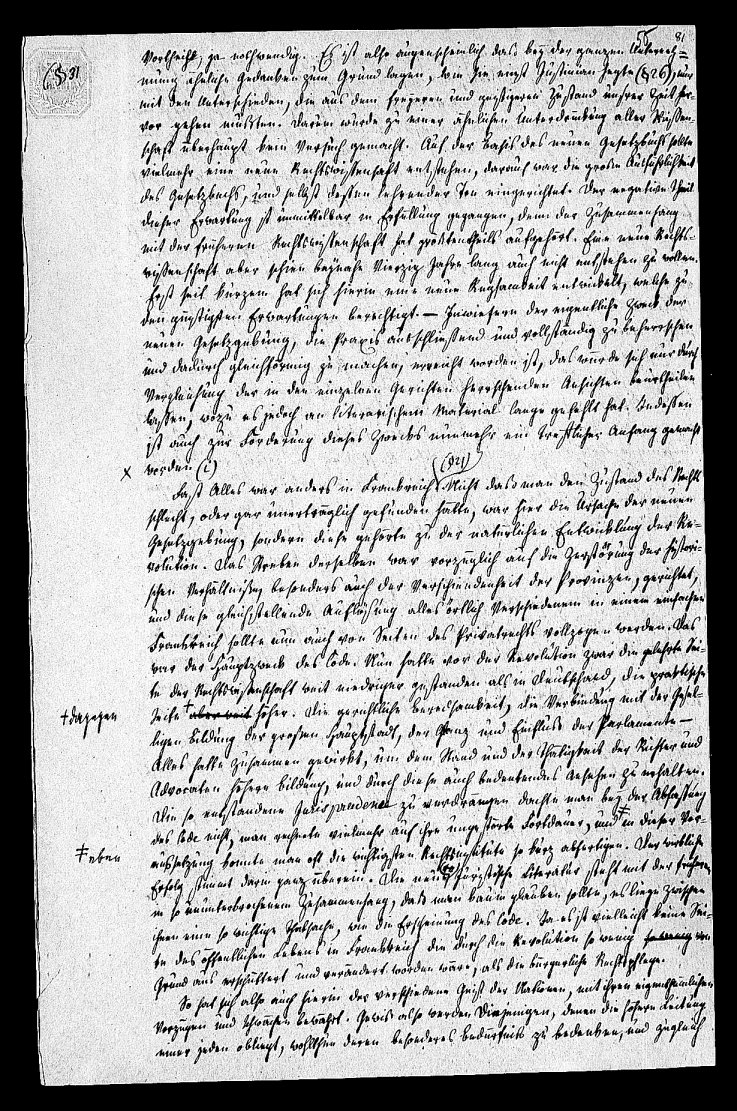 56 81
§ 31
vortheilh, ja nothwendig. Es ist also augenscheinlich daß bey der ganzen Unterneh=
mung ähnliche Gedanken zum Grund lagen, wie sie einst Justinian hegte (§ 26), nur
mit den Unterschieden, die aus dem freyeren und geistigeren Zustand unsrer Zeit her-
vor gehen mußten. Darum wurde zu einer ähnlichen Unterdrückung aller Wissen-
schaft überhaupt kein Versuch gemacht. Auf der Basis des neuen Gesetzbuchs sollte
vielmehr eine neue Rechtswissenschaft entstehen, darauf war die große Ausführlichkeit
des Gesetzbuchs, und selbst dessen lehrender Ton eingerichtet. Der negative Theil
dieser Erwartung ist unmittelbar in Erfüllung gegangen, denn der Zusammenhang
mit der früheren Rechtswissenschaft hat größtentheils aufgehört. Eine neue Rechts-
wissenschaft aber schien beynahe Vierzig Jahre lang auch nicht entstehen zu wollen.
Erst seit kurzem hat sich hierin eine neue Regsamkeit entwickelt, welche zu
den günstigsten Erwartungen berechtigt. — Inwiefern der eigentliche Zweck der
neuen Gesetzgebung, die Praxis ausschließend und vollständig zu beherrschen
und dadurch gleichförmig zu machen, erreicht worden ist, das würde sich nur durch
Vergleichung der in den einzelnen Gerichten herrschenden Ansichten beurtheilen
lassen, wozu es jedoch an literarischem Material lange gefehlt hat. Indessen
ist auch zur Förderung dieses Zwecks nunmehr ein trefflicher Anfang gemacht
× worden (i)
Fast Alles war anders in Frankreich. Nicht daß man den Zustand des Rechts
schlecht, oder gar unerträglich gefunden hätte, war hier die Ursache der neuen
Gesetzgebung, sondern diese gehörte zu der natürlichen Entwicklung der Re-
volution. Das Streben derselben war vorzüglich auf die Zerstörung der histori-
schen Verhältnisse, besonders auch der Verschiedenheit der Provinzen, gerichtet,
und diese gleichstellende Auflösung alles örtlich Verschiedenen in einem einfachen
Frankreich sollte nun auch von Seiten des Privatrechts vollzogen werden. Das
war der Hauptzweck des Code. Nun hatte vor der Revolution zwar die gelehrte Sei-
te der Rechtswissenschaft weit niedriger gestanden als in Deutschland, die praktische
† dagegen
Seite † aber weit höher. Die gerichtliche Beredsamkeit, die Verbindung mit der gesel-
ligen Bildung der großen Hauptstadt, der Glanz und Einfluß der Parlamente —
Alles hatte zusammen gewirkt, um dem Stand und der Thätigkeit der Richter und
Advocaten höhere Bildung, und durch diese auch bedeutendes Ansehen zu erhalten.
Die so entstandene Jurisprudence zu verdrängen dachte man bey der Abfassung
des Code nicht, man rechnete vielmehr auf ihre ungestörte Fortdauer, und ‡ in dieser Vor-
‡ eben
aussetzung konnte man oft die wichtigsten Rechtsinstitute so kurz abfertigen. Der wirkliche
Erfolg stimmt darin ganz überein. Die neuere juristische Literatur steht mit der früheren
in so ununterbrochenem Zusammenhang, daß man kaum glauben sollte, es liege zwischen
ihnen eine so wichtige Thatsache, wie die Erscheinung des Code. Ja es ist vielleicht keine Sei-
te des öffentlichen Lebens in Frankreich die durch die Revolution so wenig von
Grund aus erschüttert und verändert worden wäre, als die bürgerliche Rechtspflege.
So hat sich also auch hierin der verschiedene Geist der Nationen, mit ihren eigenthümlichen
Vorzügen und Schwächen bewährt. Gewiß also werden Diejenigen, denen die höhere Leitung
einer jeden obliegt, wohlthun deren besonderes Bedürfniß zu bedenken, und zugleich